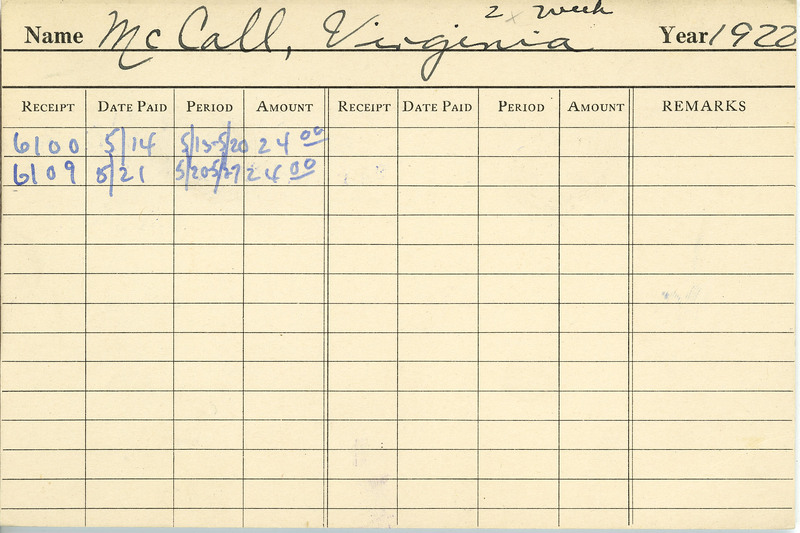 2 x week
Name McCall, Virginia Year 1922
RECEIPT DATE PAID PERIOD AMOUNT RECEIPT DATE PAID PERIOD AMOUNT REMARKS
6100 5/14 5/13-5/20 24 00
6109 5/21 5/20 5/27 24 00